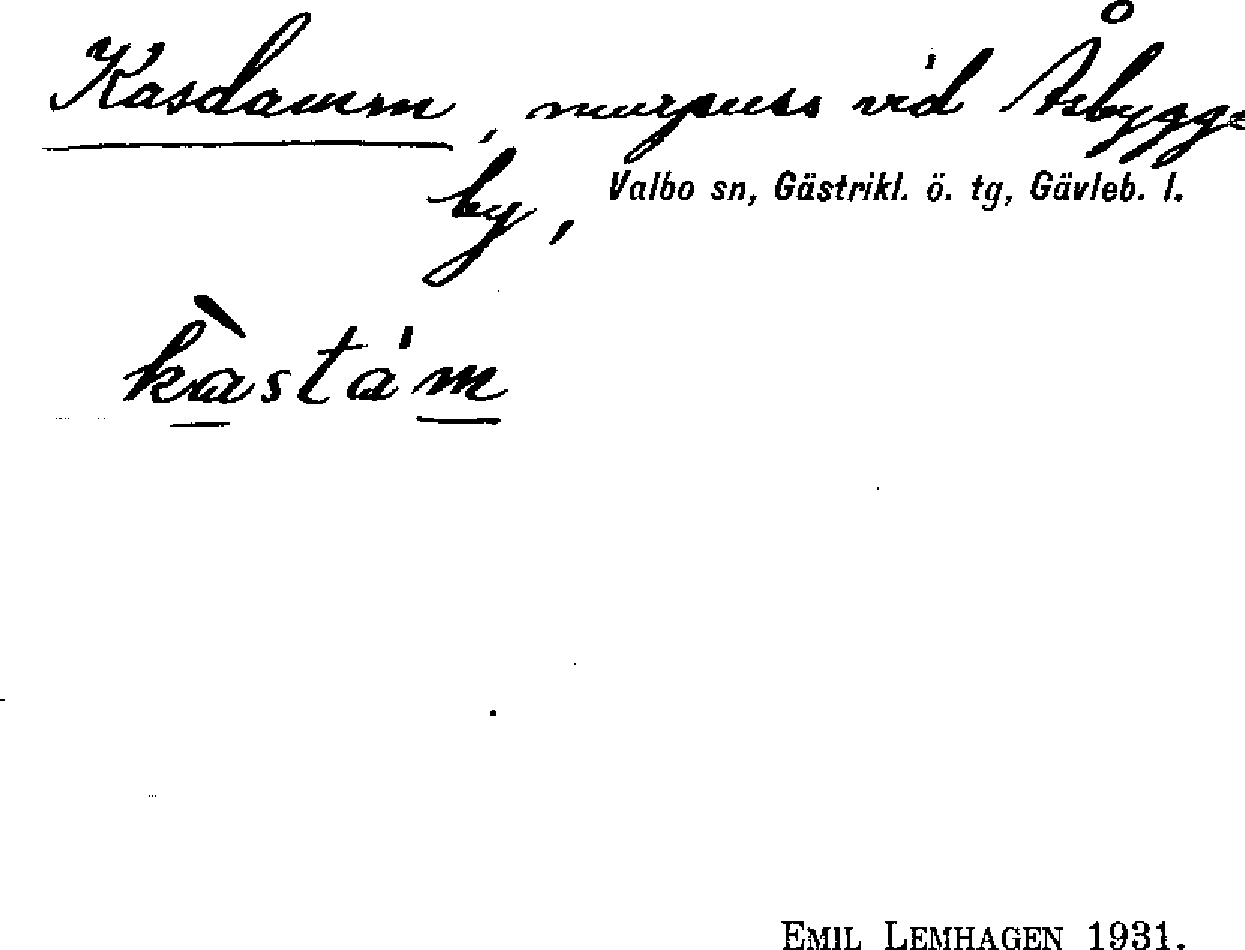 Kasdamm, murpuss vid Åbygge
by, Valbo sn, Gästrikl. ö. tg, Gävleb. l.
kàstám
EMIL LEMHAGEN 1931.